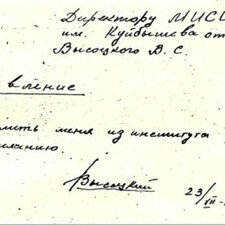 Директору МИСИ
им. Куйбышева от
Высоцкого В. С.
вление
меня из института
желанию.
Высоцкий
23/VII-